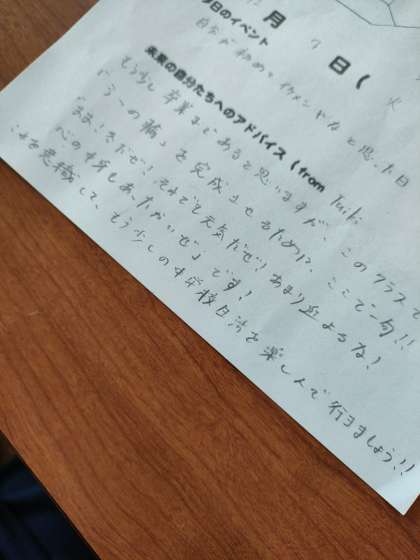 月 7 日 ( 火
今日のイベント
自分が初めてイケメンだなと思った日
未来の自分たちへのアドバイス (from Yuki
もう少し卒業まであると思いますが、このクラスで
「 の 」を完成させるために、ここで一句!!
「まま、きたぜ!それでも元気だぜ!あまり近よるな!
心の中はあったかいぜ」です!
これを意識して、もう少しの中学校自活を楽しんで行きましょう!!